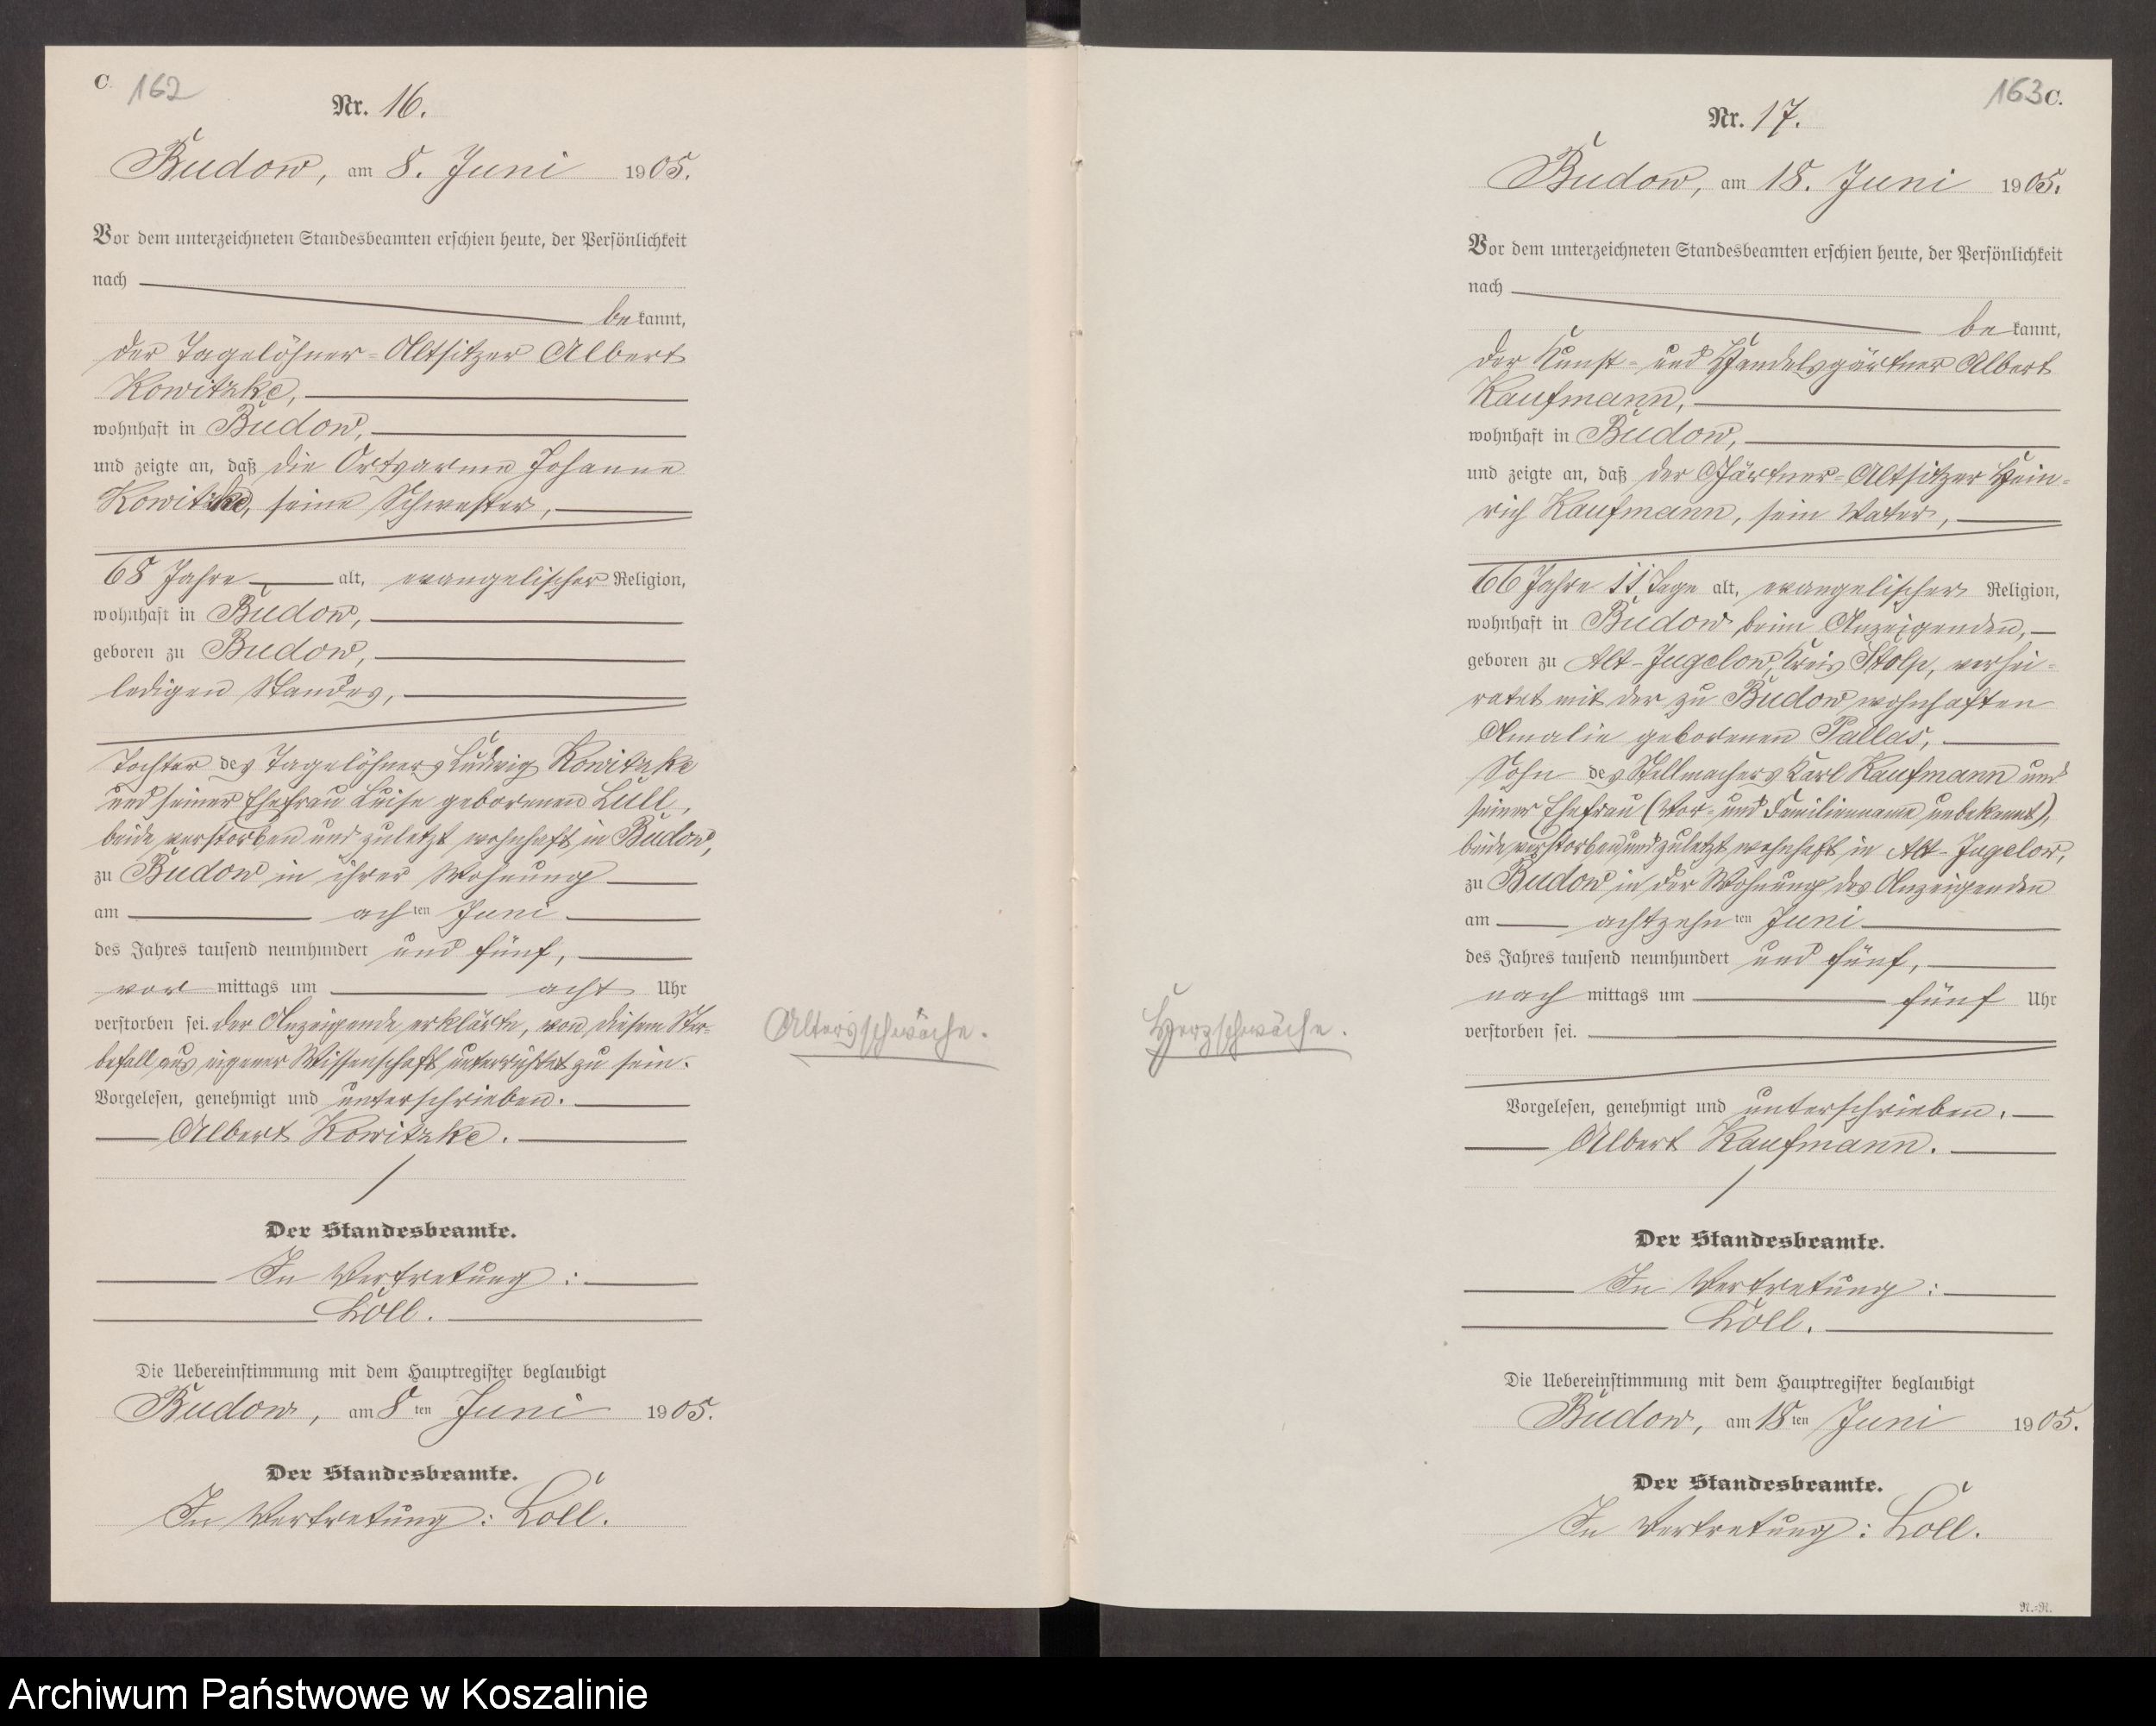 C.
162
Nr. 16.
Budow, am 8. Juni 1905.
Vor dem unterzeichneten Standesbeamten erschien heute, der Persönlichkeit
nach
be kannt,
der Tagelöhner-Altsitzer Albert
Kowitzke,
wohnhaft in Budow,
und zeigte an, daß die Ortsarme Johanne
Kowitzke, seine Schwester,
68 Jahre alt, evangelischer Religion,
wohnhaft in Budow,
geboren zu Budow,
ledigen Standes,
Tochter des Tagelöhners Ludwig Kowitzke
und seiner Ehefrau Luise geborenen Lull,
beide verstorben und zuletzt wohnhaft in Budow,
zu Budow in ihrer Wohnung
am achten Juni
des Jahres tausend neunhundert und fünf,
vor mittags um acht Uhr
verstorben sei. Der Anzeigende erklärte, von diesem Ster-
befall aus eigener Wissenschaft unterrichtet zu sein.
Vorgelesen, genehmigt und unterschrieben.
Albert Kowitzke.
Der Standesbeamte.
In Vertretung:
Löll.
Die Uebereinstimmung mit dem Hauptregister beglaubigt
Budow, am 8ten Juni 1905.
Der Standesbeamte.
In Vertretung: Löll.
Altersschwäche.
163 C.
Nr. 17.
Budow, am 18. Juni 1905.
Vor dem unterzeichneten Standesbeamten erschien heute, der Persönlichkeit
nach
be kannt,
der Kunst- und Handelsgärtner Albert
Kaufmann,
wohnhaft in Budow,
und zeigte an, daß der Gärtner-Altsitzer Hein-
rich Kaufmann, sein Vater,
66 Jahre 11 Tage alt, evangelischer Religion,
wohnhaft in Budow beim Anzeigenden,
geboren zu Alt-Jugelow, Kreis Stolp, verhei-
ratet mit der zu Budow wohnhaften
Amalie geborenen Pallas,
Sohn des Stellmachers Karl Kaufmann und
seiner Ehefrau (Vor- und Familienname unbekannt),
beide verstorben und zuletzt wohnhaft in Alt-Jugelow,
zu Budow in der Wohnung des Anzeigenden
am achtzehnten Juni
des Jahres tausend neunhundert und fünf,
nach mittags um fünf Uhr
verstorben sei.
Vorgelesen, genehmigt und unterschrieben.
Albert Kaufmann.
Der Standesbeamte.
In Vertretung:
Löll.
Die Uebereinstimmung mit dem Hauptregister beglaubigt
Budow, am 18ten Juni 1905.
Der Standesbeamte.
In Vertretung: Löll.
Herzschwäche.
N.=N.
Archiwum Państwowe w Koszalinie